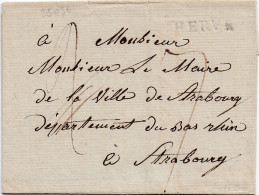 HERVE
à Monsieur
Monsieur Le Maire
de la Ville de Strabourg
département du bas rhin
à Strabourg